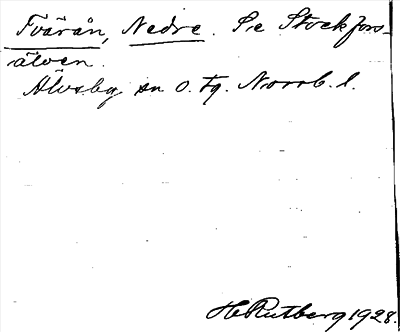 Tvärån, Nedre. Se Stockfors-
älven.
Älvsby sn o. tg. Norrb. l.
H Rutberg 1928.